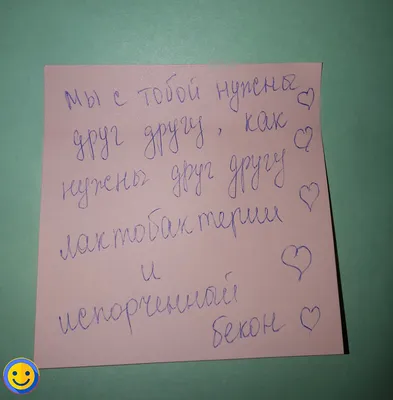 Мы с тобой нужны
друг другу, как
нужны друг другу
лактобактерии
и
испорченный
бекон